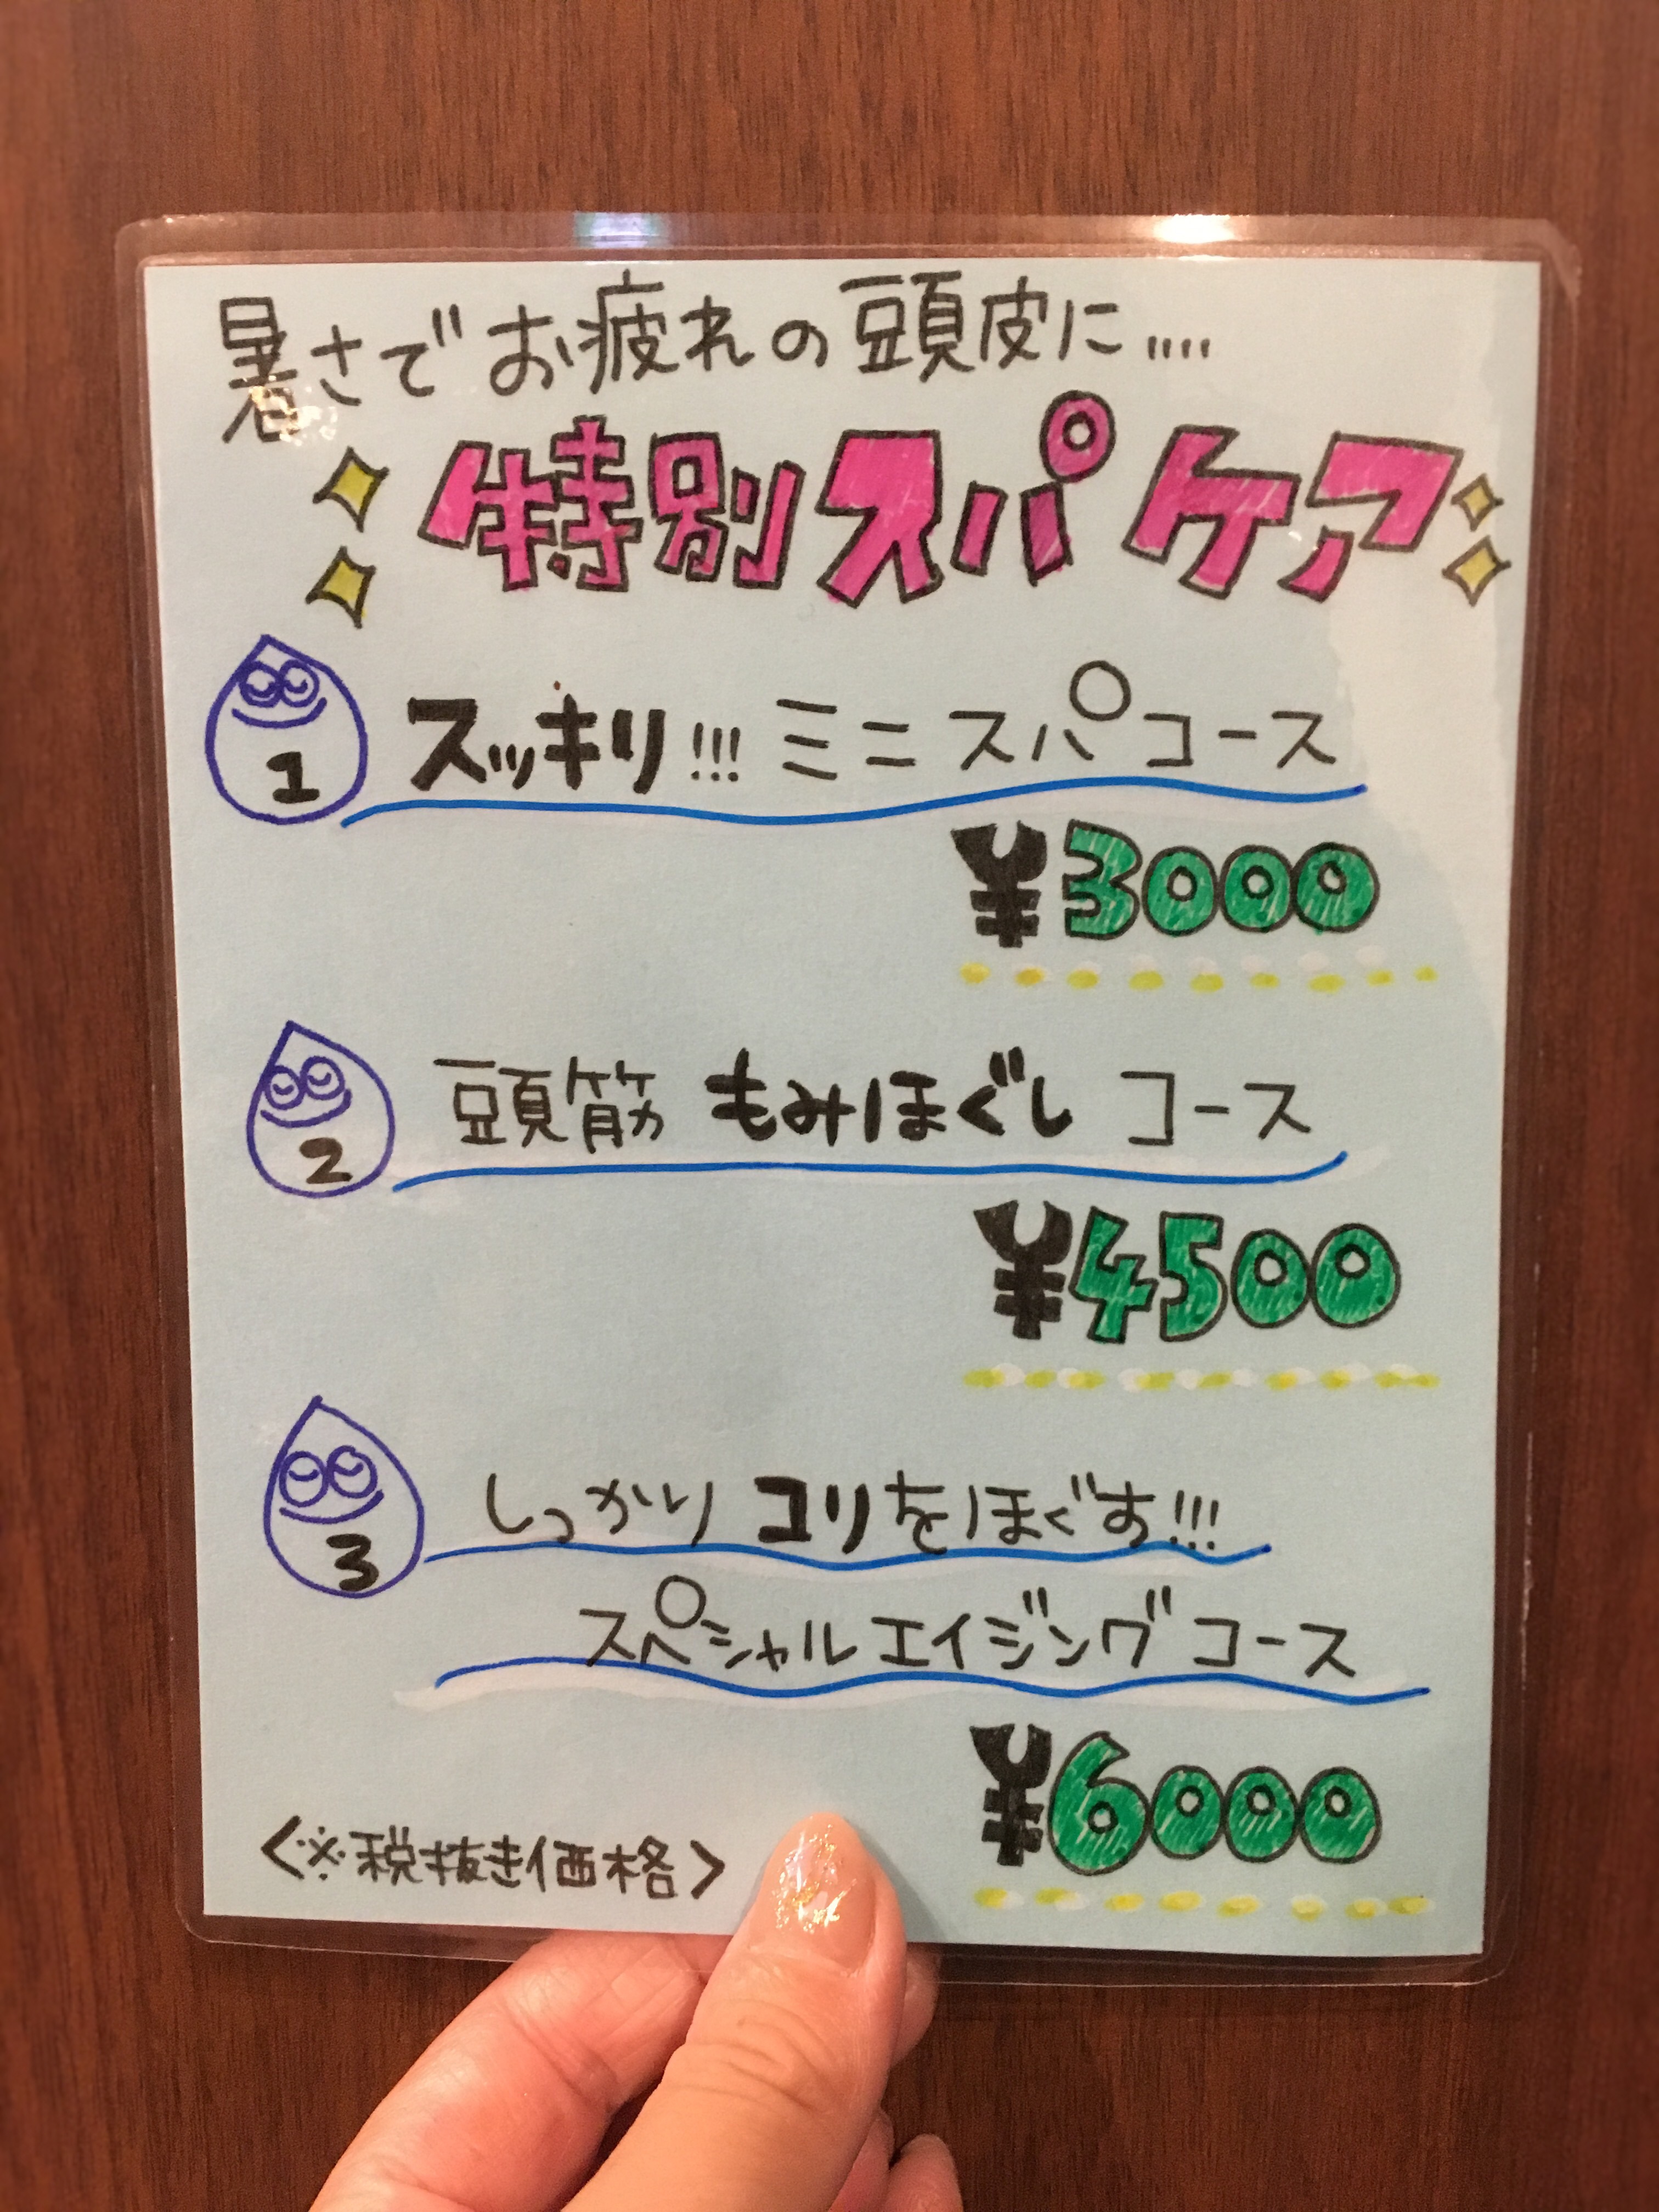 暑さでお疲れの頭皮に....
特別スパケア
1 スッキリ!!! ミニスパコース
¥3000
2 頭筋 もみほぐし コース
¥4500
3 しっかり コリをほぐす!!!
スペシャルエイジングコース
¥6000
<※税抜き価格>